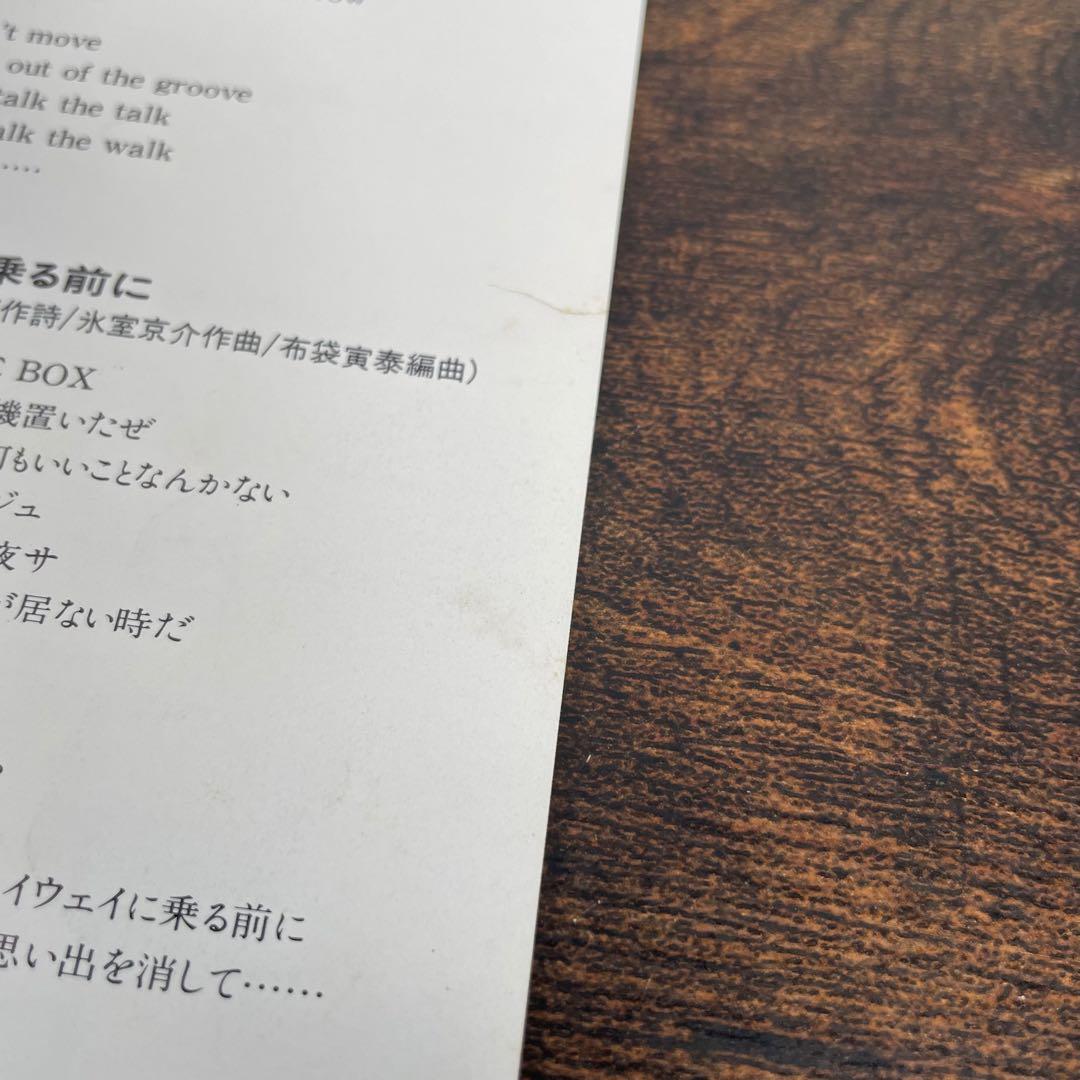 't move
out of the groove
talk the talk
alk the walk
.....
乗る前に
作詩/氷室京介作曲/布袋寅泰編曲)
BOX
機置いたぜ
何もいいことなんかない
ジュ
夜サ
が居ない時だ
イウェイに乗る前に
思い出を消して……